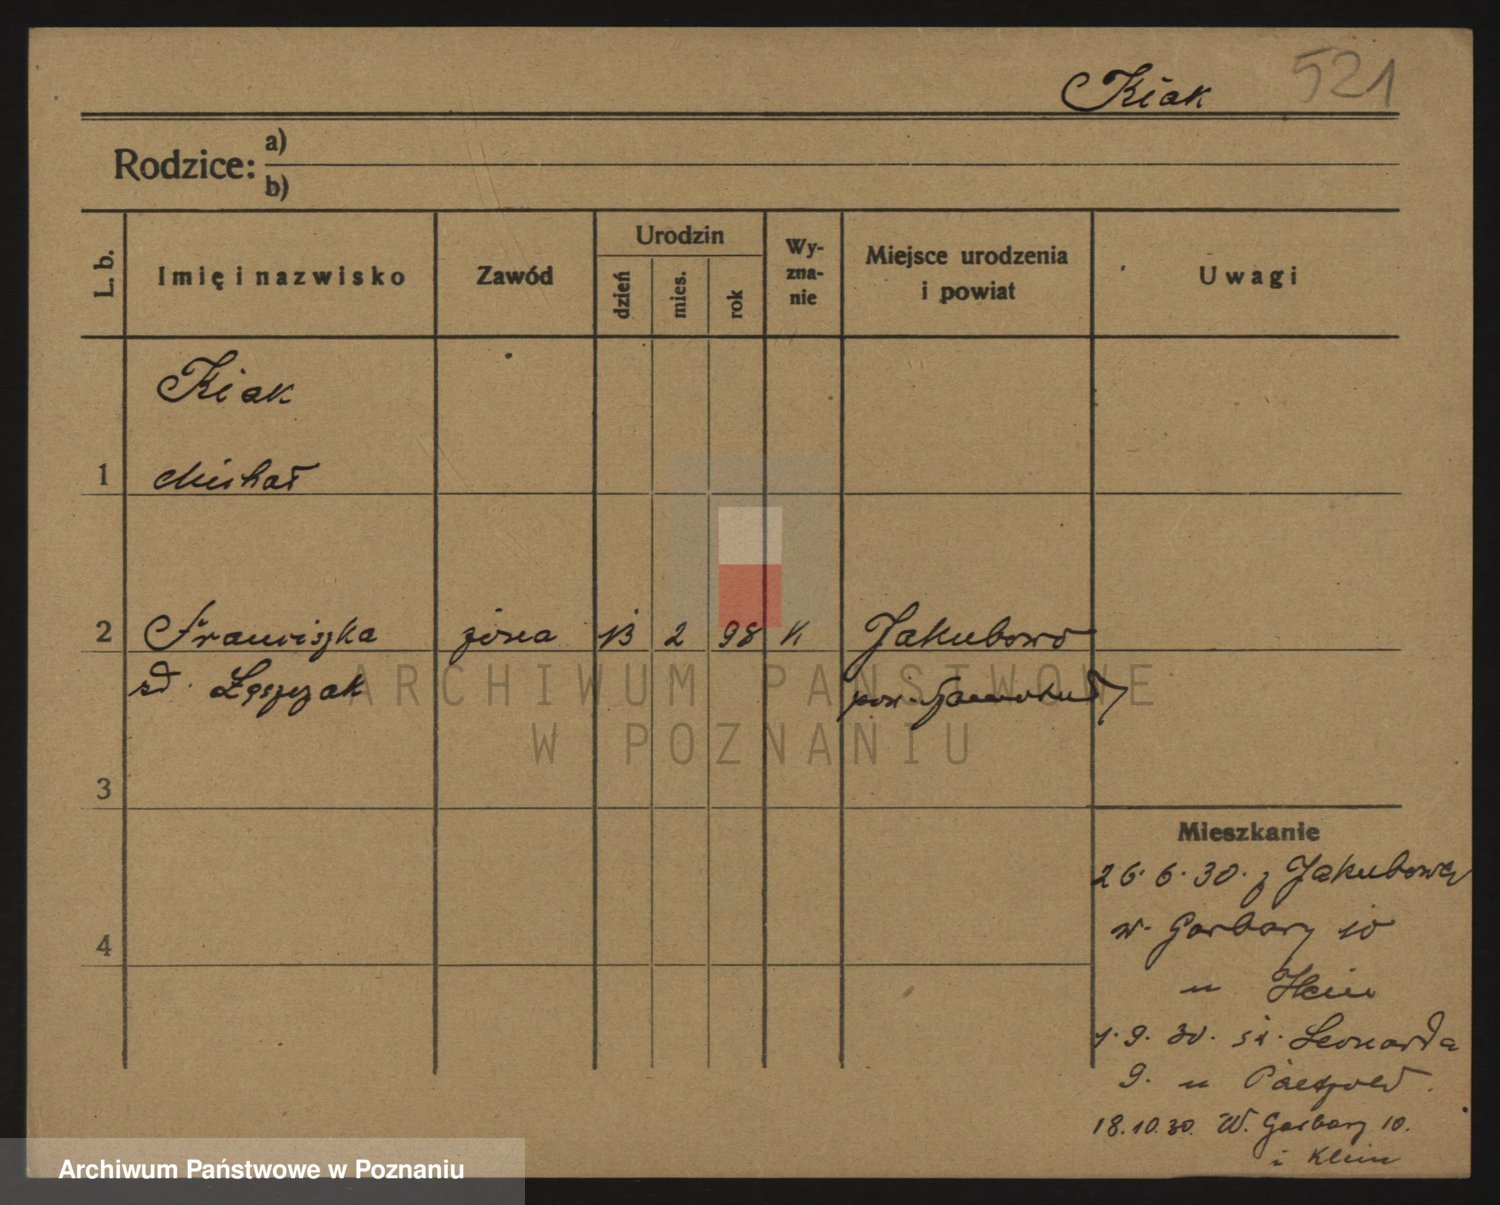 Kiak 521
Rodzice: a)
b)
L. b.
Imię i nazwisko
Zawód
Urodzin
dzień
mies.
rok
Wy-
zna-
nie
Miejsce urodzenia
i powiat
Uwagi
Kiak
1 Michał
2 Franciszka żona 13 2 98 K Jakubowo
rd. Łęszczak pow. Szamotuły
3
4
Mieszkanie
26.6.30. z Jakubowa
w. Garbary 10
u
1.9.30. św. Leonarda
9. u Paetzold.
18.10.30. W. Garbary 10.
Klein
ARCHIWUM PAŃSTWOWE
W POZNANIU
Archiwum Państwowe w Poznaniu